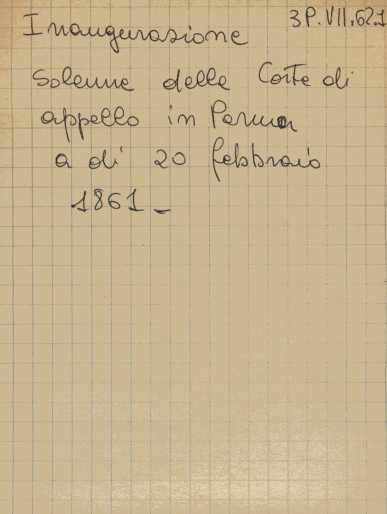 3P.VII.62.1
Inaugurazione
Solenne delle Corte di
appello in Parma
a di 20 febbraio
1861_